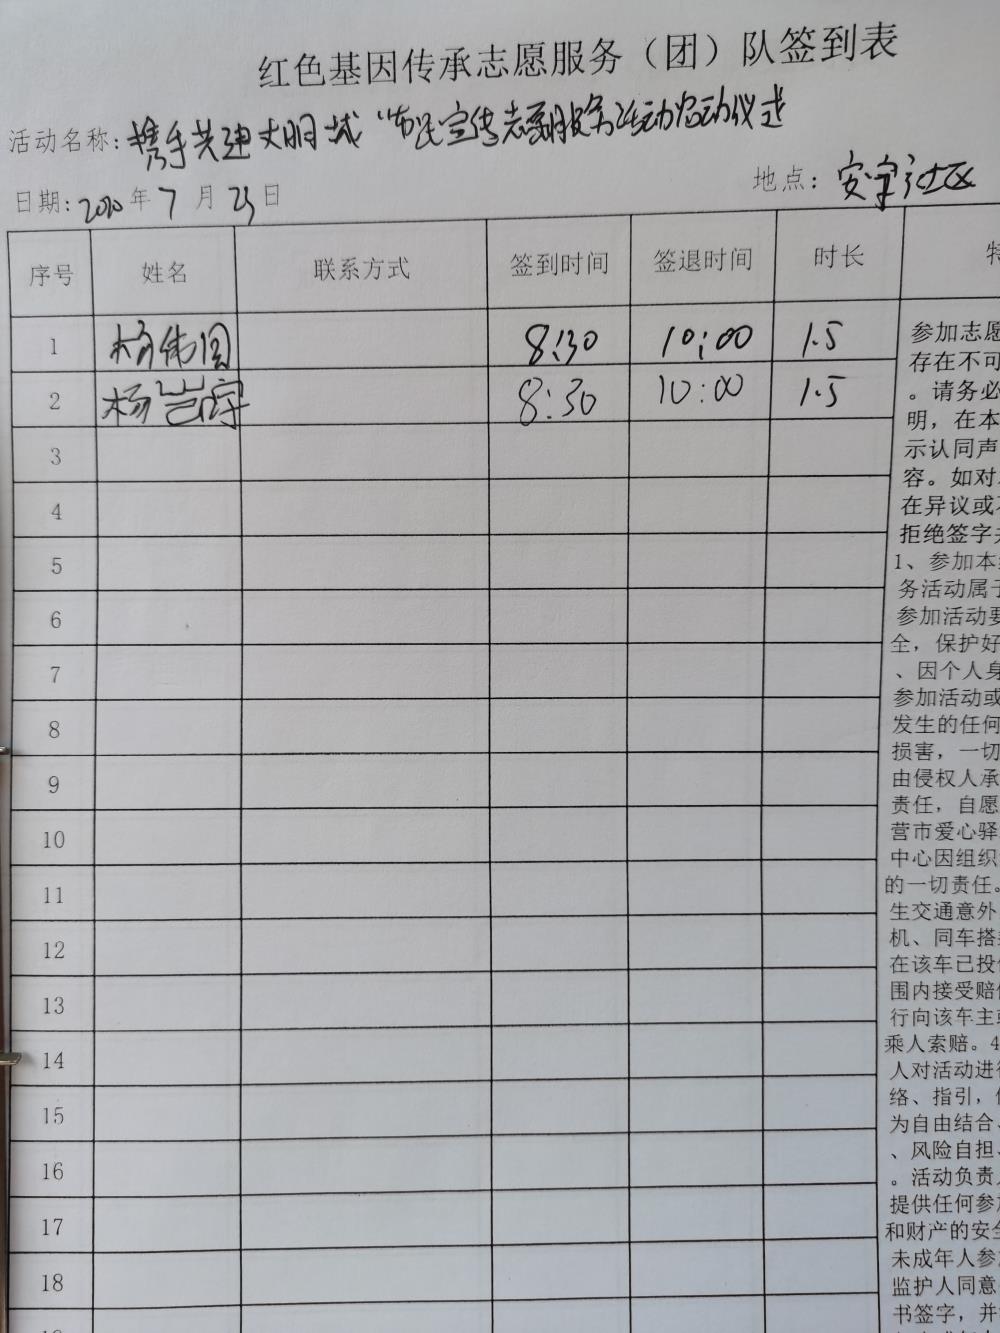 红色基因传承志愿服务（团）队签到表
活动名称：携手共建文明城"市民宣传志愿服务活动启动仪式
日期：2020年7月25日 地点：安宁社区
序号 姓名 联系方式 签到时间 签退时间 时长 特
1 杨伟国 8:30 10:00 1.5
2 杨 8:30 10:00 1.5
3
4
5
6
7
8
9
10
11
12
13
14
15
16
17
18
参加志愿
存在不可
。请务必
明，在本
示认同声
容。如对
在异议或
拒绝签字
1、参加本
务活动属于
参加活动要
全，保护好
、因个人身
参加活动或
发生的任何
损害，一切
由侵权人承
责任，自愿
营市爱心驿
中心因组织
的一切责任。
生交通意外
机、同车搭
在该车已投
围内接受赔
行向该车主
乘人索赔。4
人对活动进
络、指引，
为自由结合、
、风险自担、
。活动负责
提供任何参
和财产的安全
未成年人参
监护人同意
书签字，并